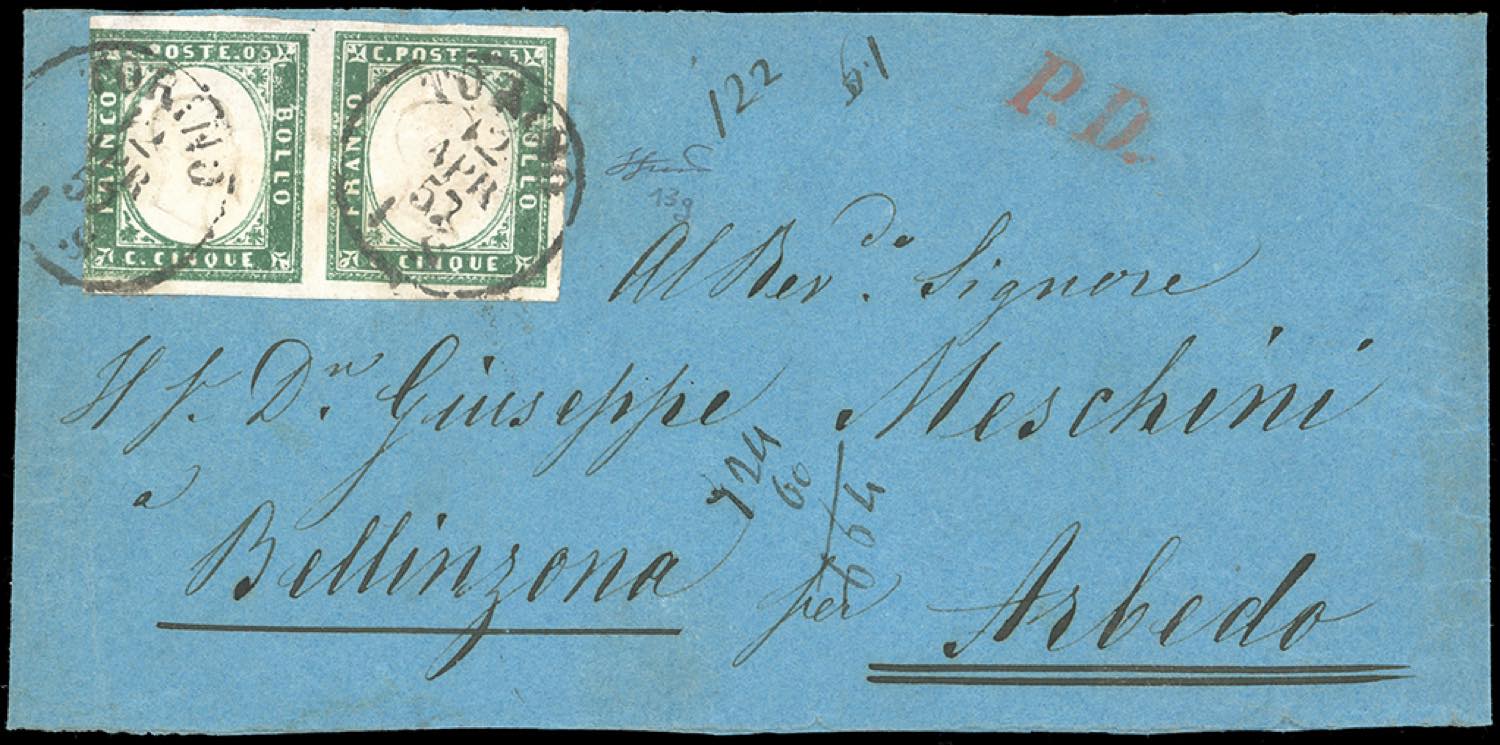 C. POSTE. 05
FRANCO
BOLLO
C. CINQUE
C. POSTE. 05
FRANCO
BOLLO
C. CINQUE
TORINO
APR
TORINO
12
APR
57
P.D.
122
13g
Al Rev.do Signore
Dn. Giuseppe Meschini
a
Bellinzona per Arbedo
124
60